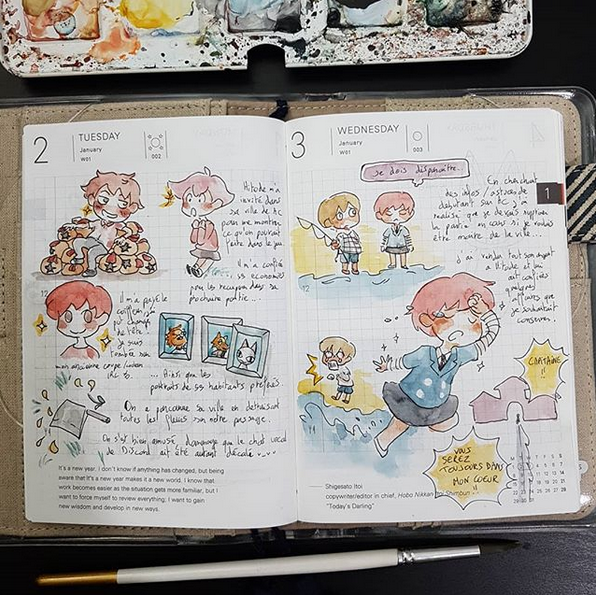 2
TUESDAY
January
W01
002
m'a
invité dans
sa ville de AC
pour me montrer
ce qu'on pouvait
faire dans le jeu.
Il m'a confié
ses économies
pour les récupérer dans sa
prochaine partie...
Il m'a payé le
coiffeur
pour changer
de tête
je suis
tombée sur
mon ancienne coupe
12
... Ainsi que les
portraits de ses habitants préférés.
On a parcouru sa ville en détruisant
toutes les fleurs sur notre passage...
On s'est bien amusé, dommage que le chat vocal
de Discord ait été autant décalé
It's a new year. I don't know if anything has changed, but being
aware that it's a new year makes it a new world. I know that
work becomes easier as the situation gets more familiar, but I
want to force myself to review everything. I want to gain
new wisdom and develop in new ways.
3
WEDNESDAY
January
W01
003
1
je dois disparaître.
En cherchant
des infos / astuces de
débutant sur AC j'ai
réalisé que je devais supprimer
la partie en cours si je voulais
être maire de la ville...
j'ai vendu tout son argent
à Hitode et lui
ait confiées
quelques
affaires que
je souhaitant
conserver.
12
CAPITAINE
!!
VOUS
SEREZ
TOUJOURS DANS
MON COEUR
Shigesato Itoi
copywriter/editor in chief, Hobo Nikkan Itoi Shimbun
"Today's Darling"